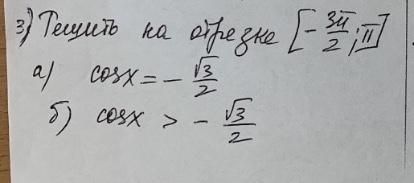 3) Решить на отрезке [-3π/2; π]
а) cosx = -√3/2
б) cosx > -√3/2